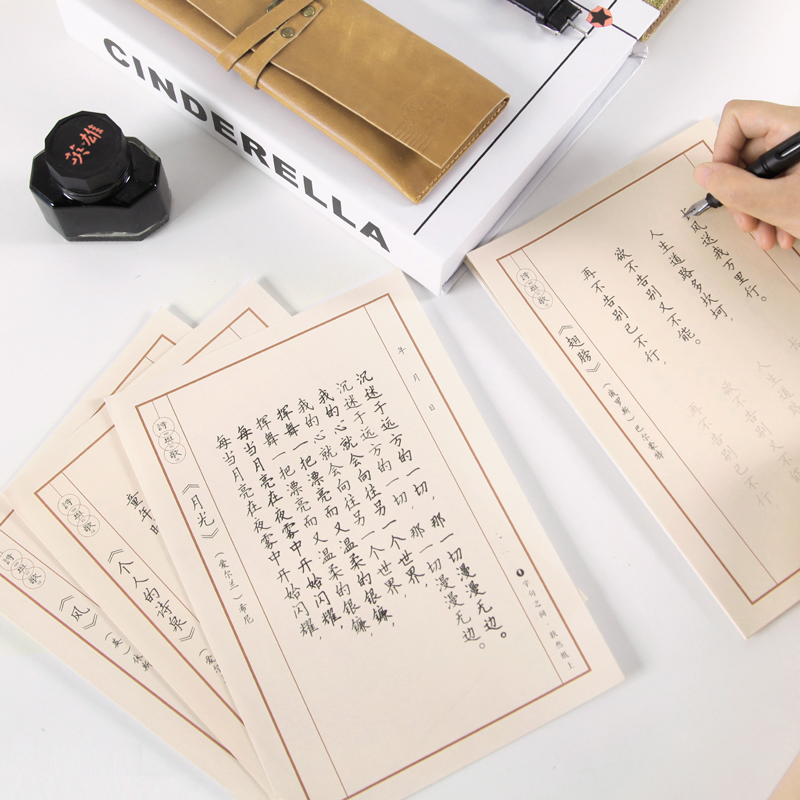 CINDERELLA
英雄
詩班歌
《翅膀》
（俄罗斯）巴尔蒙特
再不告别已不行，
欲不告别又不能。
人生道路多坎坷，
长风送我万里行。
再不告别已不行
欲不告别又不能
人生道路
长
詩班歌
《月光》
（爱尔兰）希尼
每当月亮在夜雾中开始闪耀，
每当月亮在夜雾中开始闪耀，
挥舞一把漂亮而又温柔的银镰，
挥舞一把漂亮而又温柔的银镰，
我的心就会向往另一个世界
我的心就会向往另一个世界
沉迷于远方的一切，那一切漫漫无边。
沉迷于远方的一切，那一切漫漫无边。
年 月 日
字句之间，跃然纸上
詩班歌
《个人的诗泉》
（爱尔
童年时
詩班歌
《风》
（英）休斯